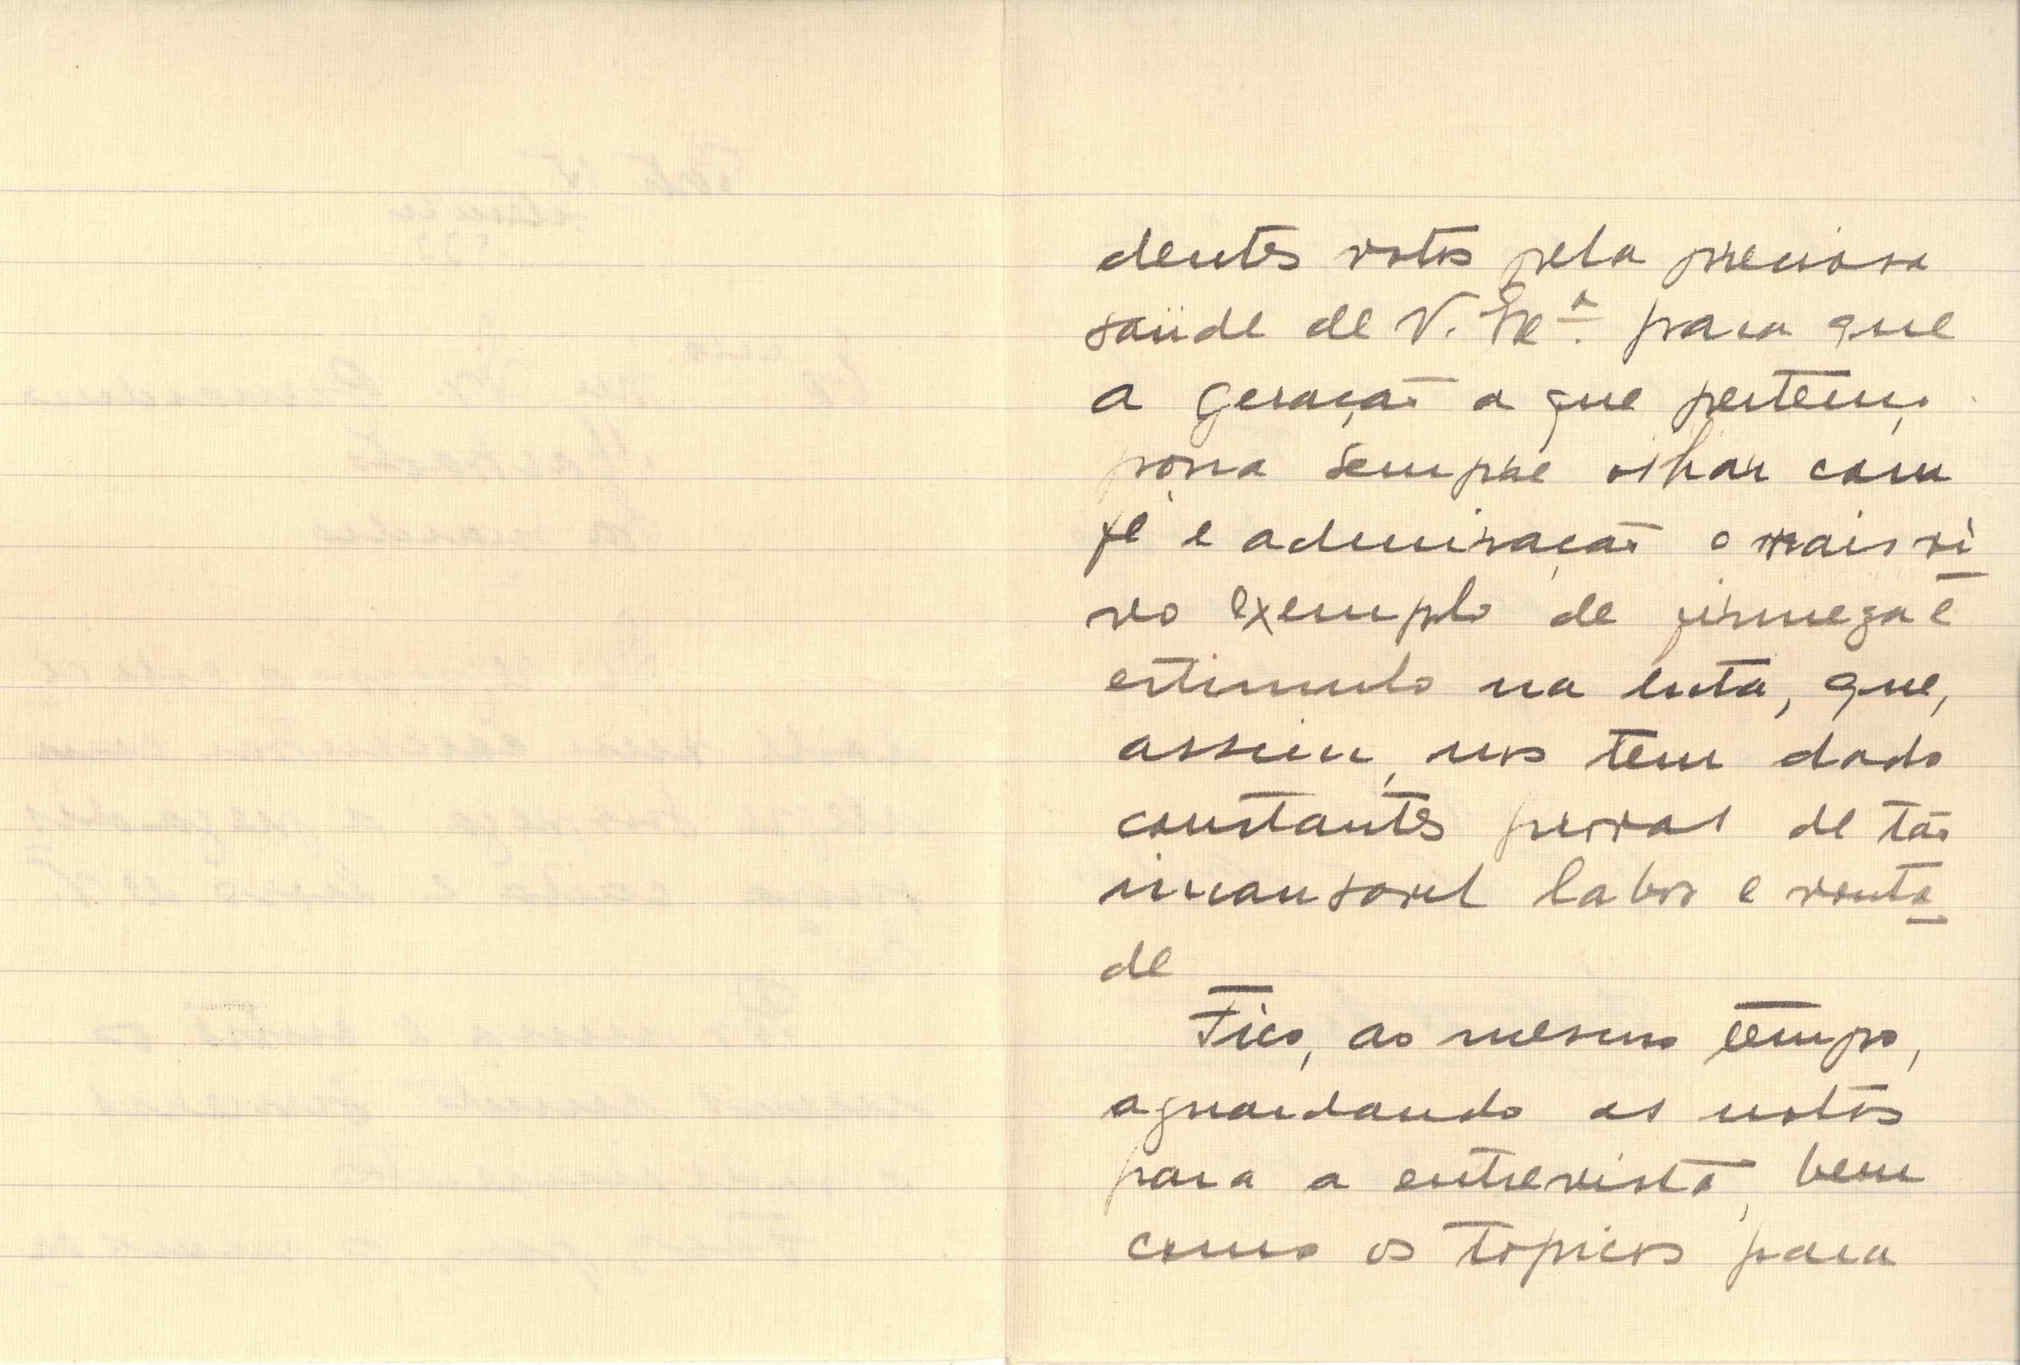 dentes votos pela preciosa
saúde de V. Exª. para que
a geração a que pertenço
possa sempre olhar com
fé e admiração o mais vi
vo exemplo de firmeza e
estimulo na luta, que,
assim, nos tem dado
constantes provas de tão
incansavel labor e vonta
de
Fico, ao mesmo tempo,
aguardando as notas
para a entrevista, bem
como os topicos para